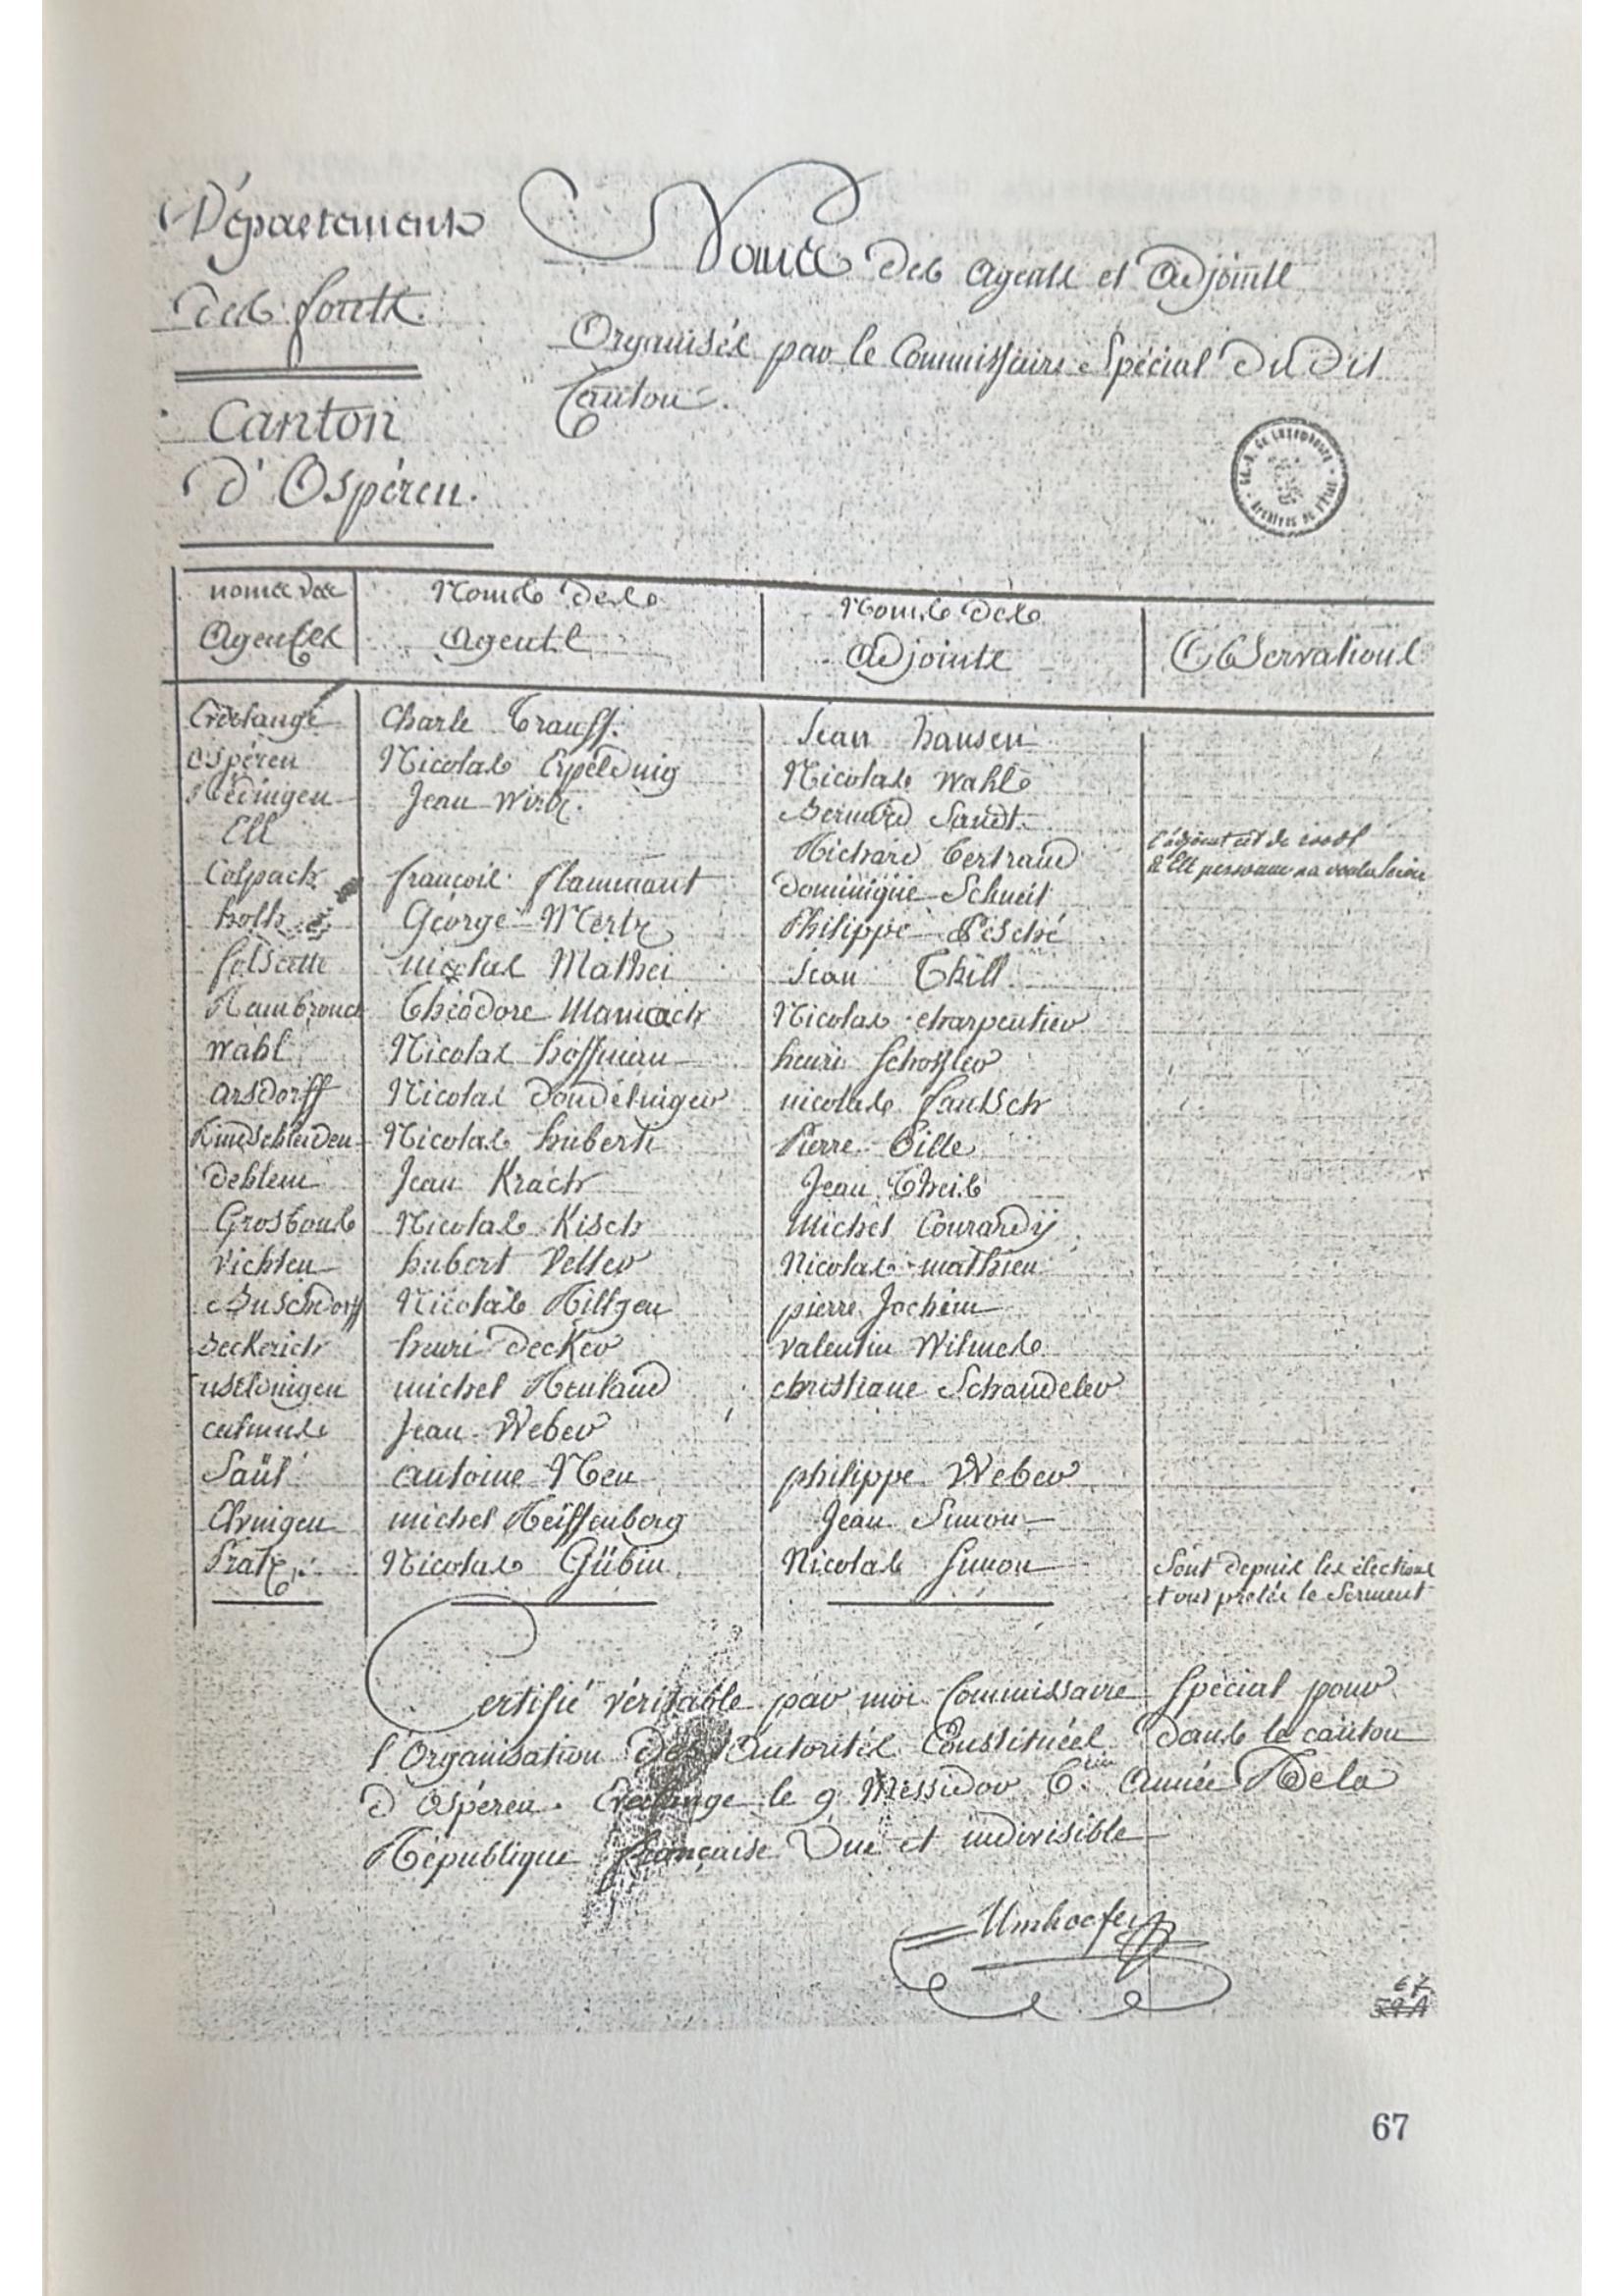 Département
des forêts.
Canton
d'Ospéren.
Noms des agents et adjoints
Organisés par le Commissaire Spécial du dit
Canton.
G.-D. de Luxembourg
Archives de l'État
noms des
Agences
Noms des
Agents
Noms des
Adjoints
Observations
Everlange Charle Trauff. Jean hansen
Ospéren Nicolas Erpelding Nicolas Wahl
Rédingen Jean Wirtz. Bernard Sandt.
Ell Richard Bertrand l'adjoint est de
à Ell personne n'a voulu
Colpach françois flammant Dominique Schneit
holtz George Mertz Philippe Pesché
folscette nicolas Mathei Jean Thill
Rambrouch Théodore Mannach Nicolas charpentier
Wahl Nicolas hoffman henri Schossler
arsdorff Nicolas Dondelinger nicolas fautsch
Rindschleiden Nicolas huberti Pierre Bille
Deblem Jean Krack Jean Theis
Grosbous Nicolas Kisch Michel Courardÿ
Vichten hubert Petter Nicolas mathieu
Buschdorff Nicolas Hiltgen pierre Jochem
Beckerich henri Decker valentin Wilmes
useldingen michel Reuland christiane Schandeler
calmus Jean Weber
Saül antoine Neu philippe Weber
Elvingen michel Reiffenberg Jean Simon
Pratz Nicolas Gübin Nicolas Simon Sont depuis les élections
et ont prêté le Serment
Certifié véritable par moi Commissaire Spécial pour
l'Organisation des Autorités Constituées dans le canton
d'Ospéren. Everlange le 9 Messidor 6.me Année De la
République française Une et indivisible
Umhoefer
67
67